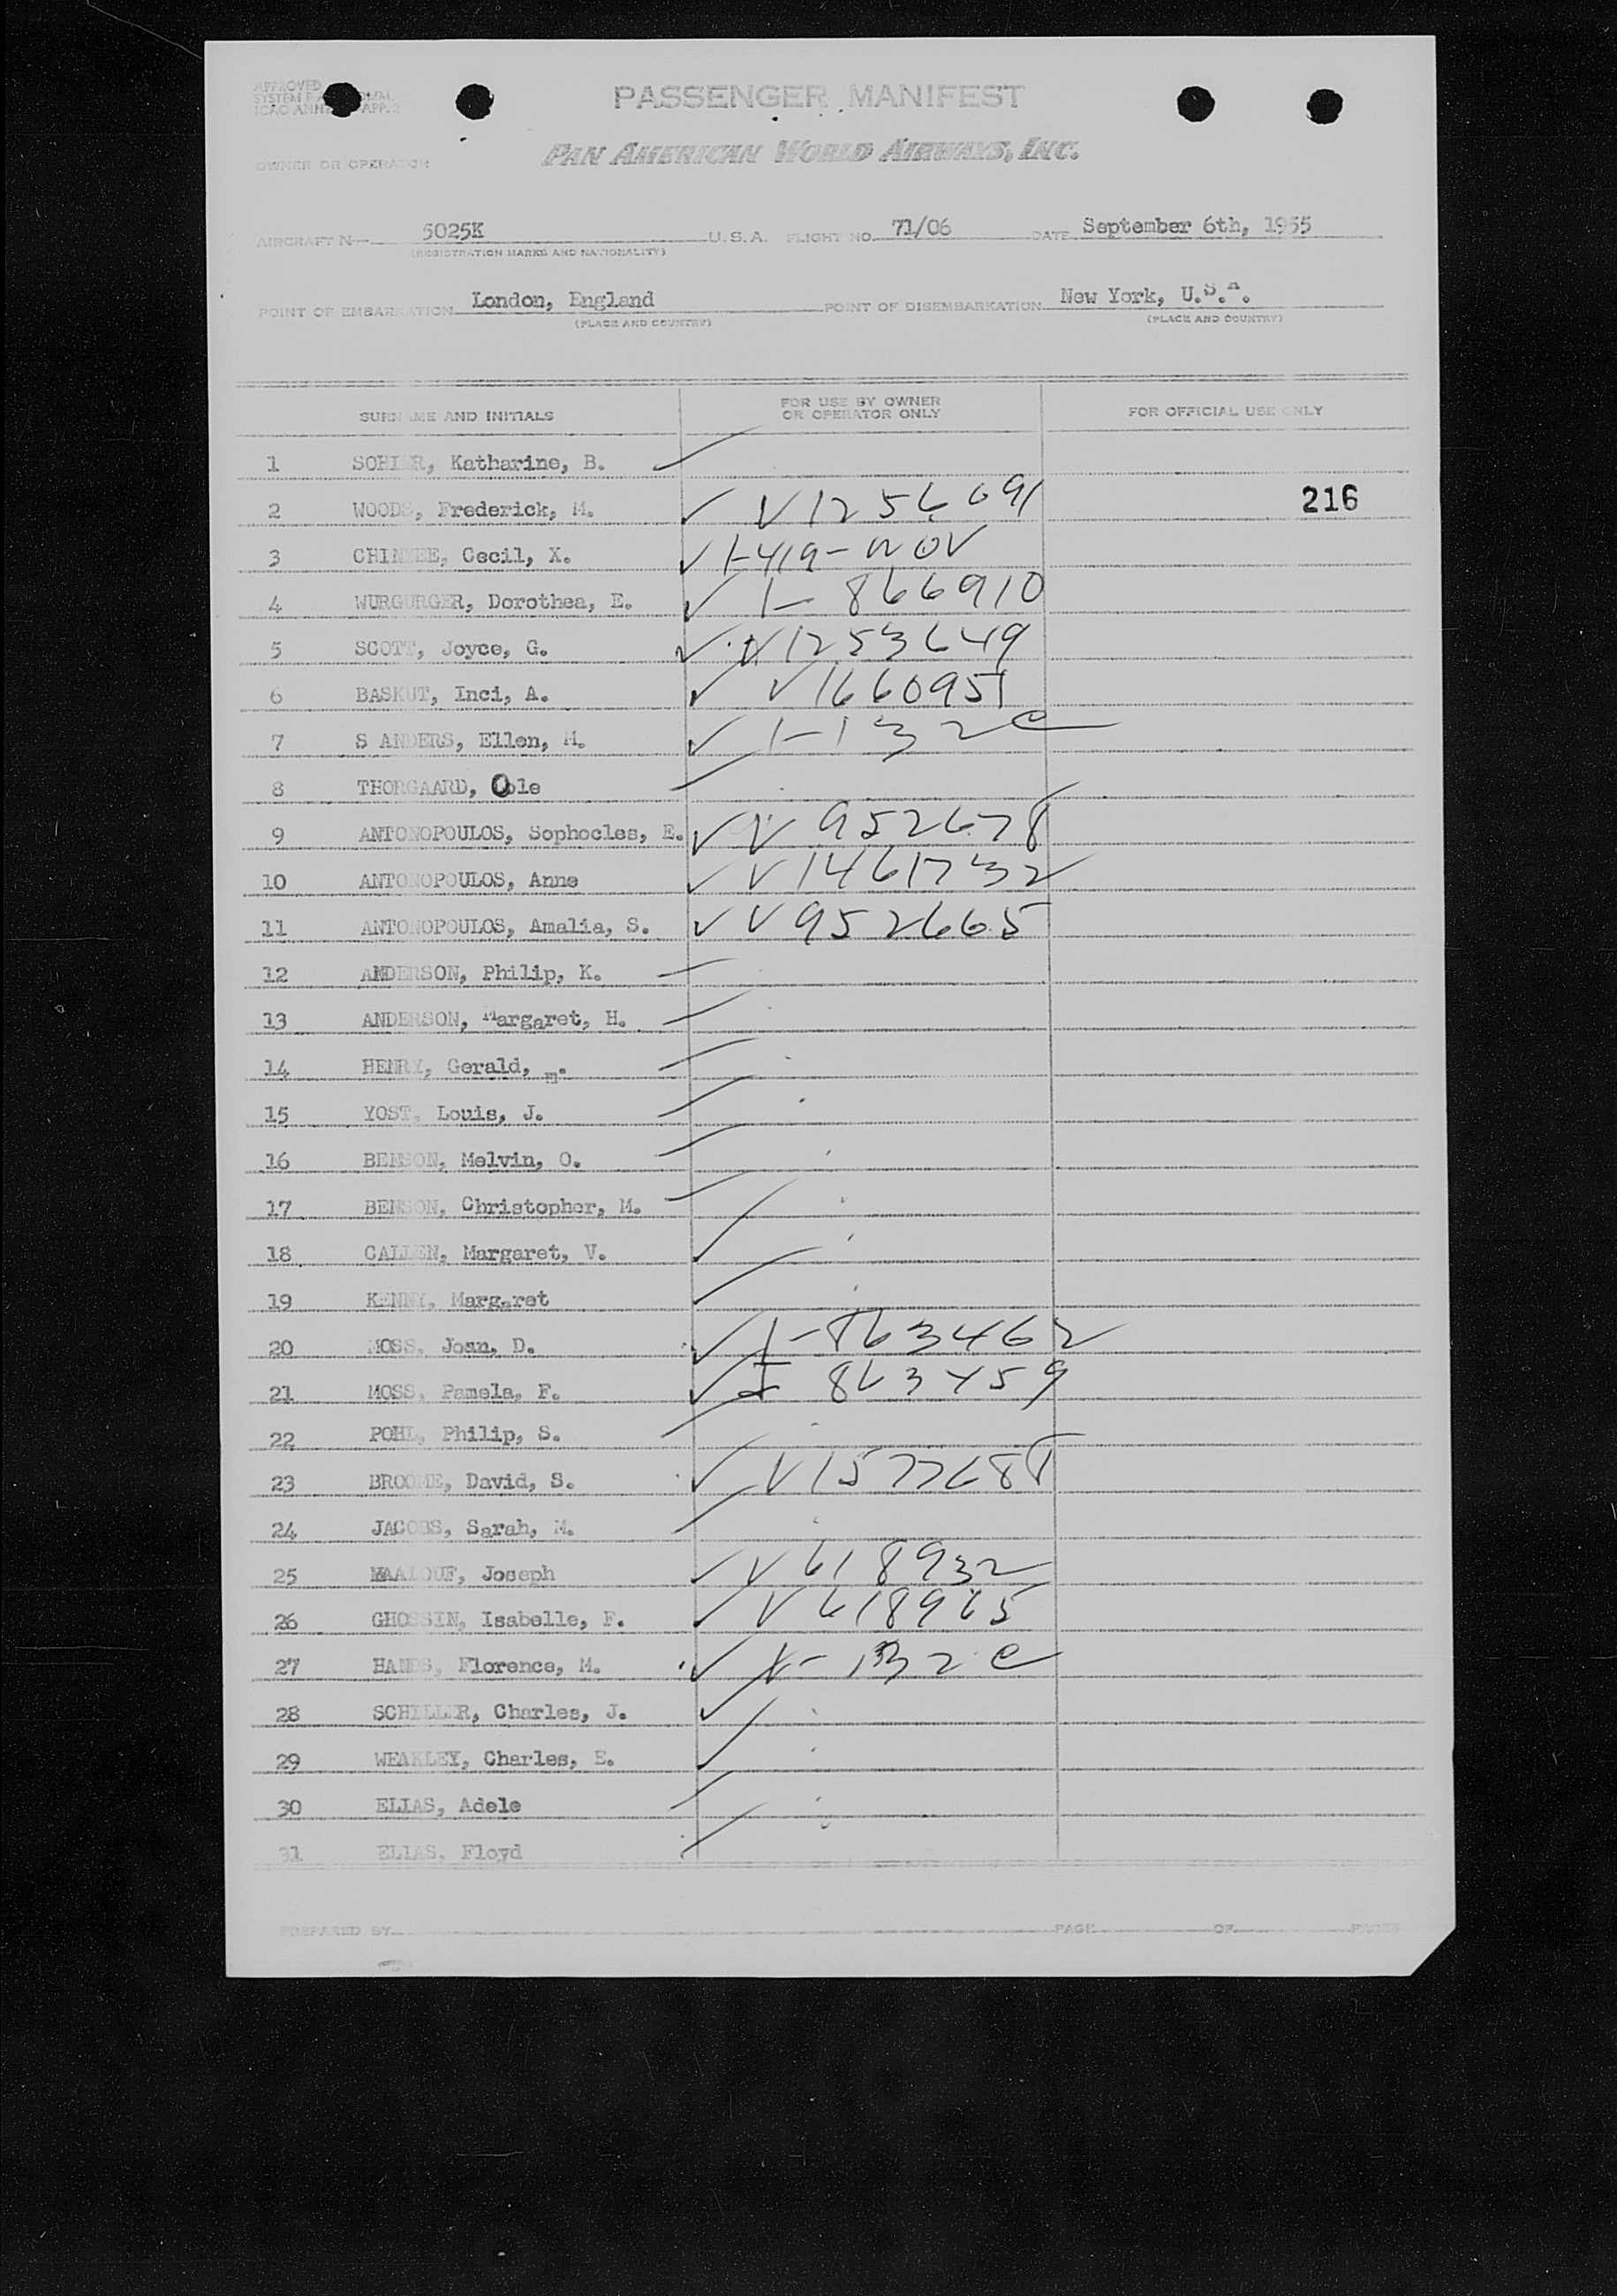 APPROVED
SYSTEM
ICAO ANN APP. 2
PASSENGER MANIFEST
OWNER OR OPERATOR
PAN AMERICAN WORLD AIRWAYS, INC.
AIRCRAFT N 5025K U. S. A. FLIGHT NO. 71/06 DATE September 6th, 1955
(REGISTRATION MARKS AND NATIONALITY)
POINT OF EMBARKATION London, England POINT OF DISEMBARKATION New York, U.S.A.
(PLACE AND COUNTRY) (PLACE AND COUNTRY)
SURNAME AND INITIALS FOR USE BY OWNER OR OPERATOR ONLY FOR OFFICIAL USE ONLY
1 SOHIER, Katharine, B.
2 WOODS, Frederick, M. V1256691 216
3 CHINYEE, Cecil, X. I-419-NOV
4 WURGURGER, Dorothea, E. I-866910
5 SCOTT, Joyce, G. V1253649
6 BASKUT, Inci, A. V1660951
7 S ANDERS, Ellen, M. I-132C
8 THORGAARD, Ole
9 ANTONOPOULOS, Sophocles, E. V952678
10 ANTONOPOULOS, Anna V1461732
11 ANTONOPOULOS, Amalia, S. V952665
12 ANDERSON, Philip, K.
13 ANDERSON, Margaret, H.
14 HENRY, Gerald, m.
15 YOST, Louis, J.
16 BENSON, Melvin, O.
17 BENSON, Christopher, M.
18 CALLEN, Margaret, V.
19 KENNY, Margaret
20 MOSS, Joan, D. I-863462
21 MOSS, Pamela, F. I 863459
22 POHL, Philip, S.
23 BROOME, David, S. V1577688
24 JACOBS, Sarah, M.
25 MAALOUF, Joseph V618932
26 GHOSSIN, Isabelle, F. V618965
27 HANDS, Florence, M. I-132C
28 SCHILLER, Charles, J.
29 WEAKLEY, Charles, E.
30 ELIAS, Adele
31 ELIAS, Floyd
PREPARED BY PAGE OF PAGES